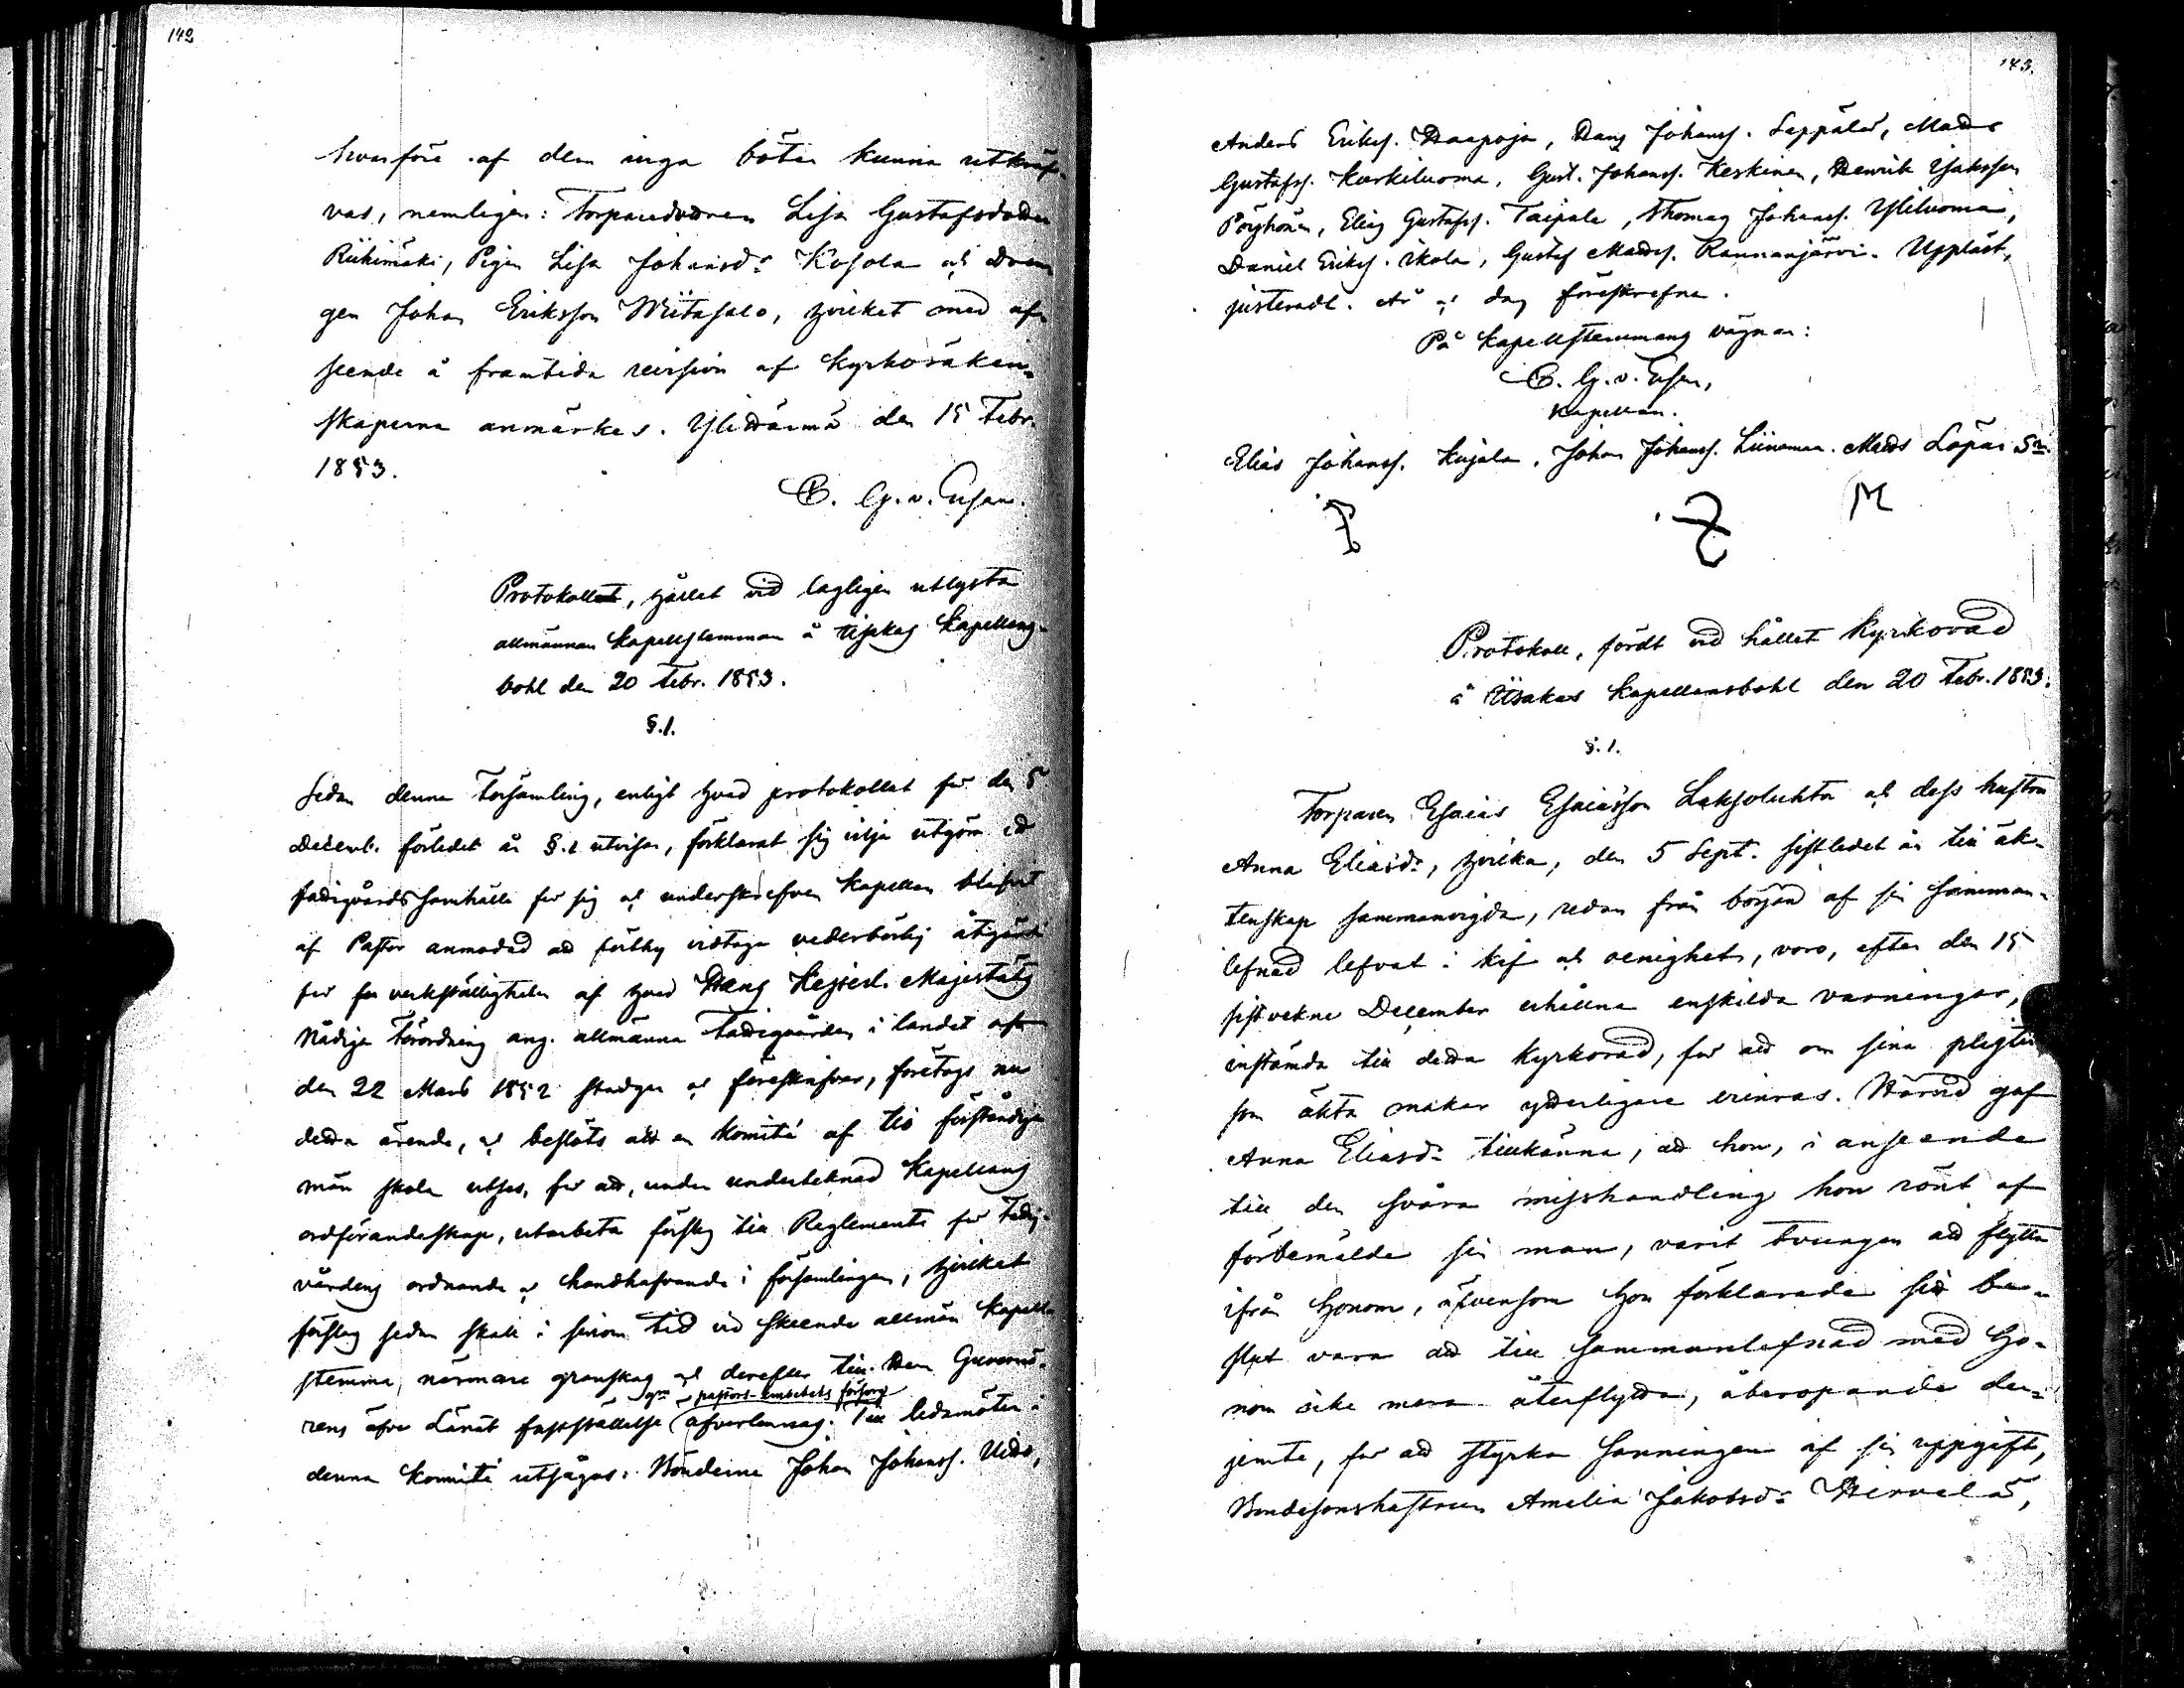 142
hvarföre af dem inga böter kunna utkräf-
vas, nemligen: Torparedottren Lisa Gustafsdotter
Riihimäki, Pigan Lisa Johansdr Kojola och Drän-
gen Johan Eriksson Wiitasalo, hvilket med af-
seende å framtida revision af Kyrkoräken-
skaperna anmärkes. Ylihärmä den 15 Febr.
1853.
C. G. v. Essen.
Protokollet, hållet vid lagligen utlysta
allmännan Kapellstemman å Kapellans-
bohl den 20 Febr. 1853.
§.1.
Sedan denna Församling, enligt hvad protokollet för den 5
Decemb. förledet år §.1 utvisar, förklarat sig vilja utgöra ett
fattigvårdssamhälle för sig och underskrefven Kapellan blifvit
af Pastor anmodad att förthy vidtaga vederbörlig åtgärd
för verkställigheten af hvad Hans Kejserl. Majestäts
Nådiga Förordning ang. allmänna Fattigvården i landet af
den 22 Mars 1852 stadgar och föreskrifver, företogs nu
detta ärende, och beslöts att en Komité af tio förståndige
män skola utses, för att, under undertecknad Kapellans
ordförandeskap, utarbeta förslag till Reglemente för Fattig-
vårdens ordnande och handhafvande i församlingen, hvilket
förslag sedan skall i sinom tid vid skeende allmän Kapell-
stemma, närmare granskas och derefter till Herr Guvernö-
gm pastors-embetets försorg
rens öfver Länet fastställelse öfverlemnas. Till ledamöter i
denna Komité utsågos: Bönderne Johan Johanss. Uitto,
143.
Anders Eriks. Haapoja, Hans Johanss. Seppälä, Matts
Gustafss. Kurkiluoma, Gust. Johanss. Keskinen, Henrik Isaksson
Pöyhönen, Elias Gustafss. Taipale, Thomas Johanss. Yliluoma,
Daniel Erikss. Ikola, Gustaf Mattss. Rannanjärvi. Uppläst,
justeradt. År och dag föreskrefne.
På Kapellstemmans vägnar:
C. G. v. Essen,
Kapellan.
Elias Johanss. Kujala. Johan Johanss. Liinamaa. Matts Löpar
M
Protokoll, fördt vid hållet Kyrkoråd
å Kapellansbohl den 20 Febr. 1853.
§.1.
Torparen Esaias Esaiasson Laksoluhta och dess hustru
Anna Eliasdr, hvilka, den 5 Sept. sistledet år till äk-
tenskap sammanvigda, redan från början af sin samman-
lefnad lefvat i kif och oenighet, voro, efter den 15
sistvekne December erhållna enskilda varningar,
instämda till detta Kyrkoråd, för att om sina pligter
som äkta makar ytterligare erinras. Härvid gaf
Anna Eliasdr tillkänna, att hon, i anseende
till den svåra misshandling hon rönt af
förbemälde sin man, varit tvungen att flytta
ifrån honom, äfvensom hon förklarade sitt be-
slut vara att till sammanlefnad med ho-
nom icke mera återflytta, åberopande der-
jemte, för att styrka sanningen af sin uppgift,
Bondesonshustrun Amelia Jakobsdr Hirvelä,